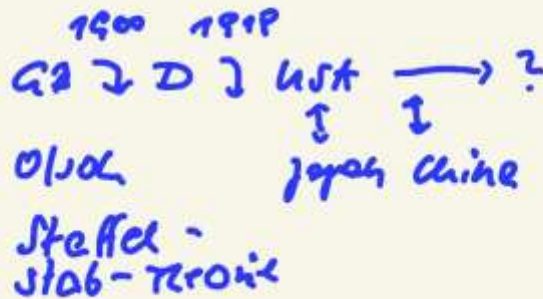 1900 1918
GB D USA ?
Olson
Japan China
Staffel-
stab-Theorie